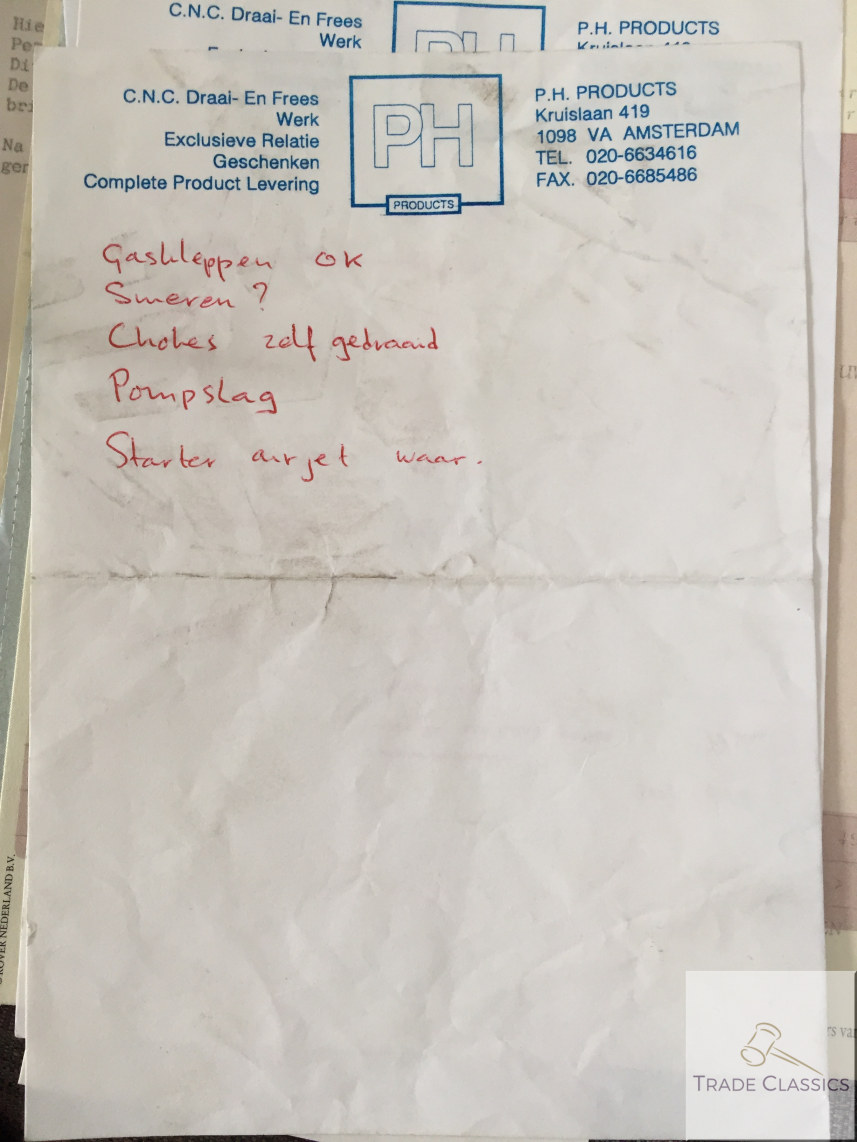 Hie
Pe
Di
De
bri
Na
ger
C.N.C. Draai- En Frees
Werk
P.H. PRODUCTS
Kruislaan 419
C.N.C. Draai- En Frees
Werk
Exclusieve Relatie
Geschenken
Complete Product Levering
PH
PRODUCTS
P.H. PRODUCTS
Kruislaan 419
1098 VA AMSTERDAM
TEL. 020-6634616
FAX. 020-6685486
Gaskleppen OK
Smeren?
Chokes zelf gedraaid
Pompslag
Starter airjet waar.
ROVER NEDERLAND B.V.
TRADE CLASSICS